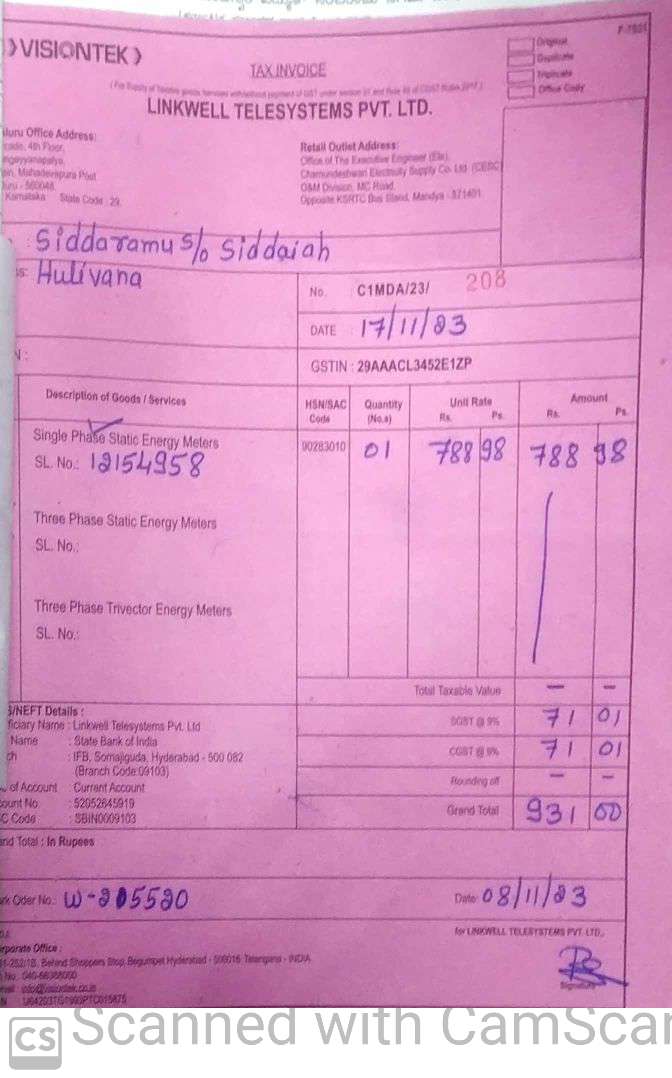 VISIONTEK
F-7501
TAX INVOICE
Original
Duplicate
Triplicate
Office Copy
LINKWELL TELESYSTEMS PVT. LTD.
Office Address:
4th Floor,
Mahadevapura Post
560048,
Karnataka State Code : 29
Retail Outlet Address:
Office of The Executive Engineer (Ele),
Chamundeshwari Electricity Supply Co. Ltd. (CESC)
O&M Division, MC Road,
Opposite KSRTC Bus Stand, Mandya - 571401
: Siddaramu s/o Siddaiah
Hulivana
No. C1MDA/23/ 208
DATE : 17/11/23
GSTIN : 29AAACL3452E1ZP
Description of Goods / Services HSN/SAC Code Quantity (No.s) Unit Rate Rs. Ps. Amount Rs. Ps.
Single Phase Static Energy Meters 90283010 01 788 98 788 98
SL. No.: 12154958
Three Phase Static Energy Meters
SL. No.:
Three Phase Trivector Energy Meters
SL. No.:
Total Taxable Value — —
SGST @ 9% 71 01
CGST @ 9% 71 01
Rounding off — —
Grand Total 931 00
S/NEFT Details :
ficiary Name : Linkwell Telesystems Pvt. Ltd
Name : State Bank of India
ch : IFB, Somajiguda, Hyderabad - 500 082
(Branch Code:09103)
of Account : Current Account
ount No : 52052645919
C Code : SBIN0009103
and Total : In Rupees
rk Oder No.: W-205520
Date: 08/11/23
for LINKWELL TELESYSTEMS PVT. LTD.,
rporate Office :
Behind Shoppers Stop, Begumpet Hyderabad - 500016 Telangana - INDIA
Signature
CS Scanned with CamScan